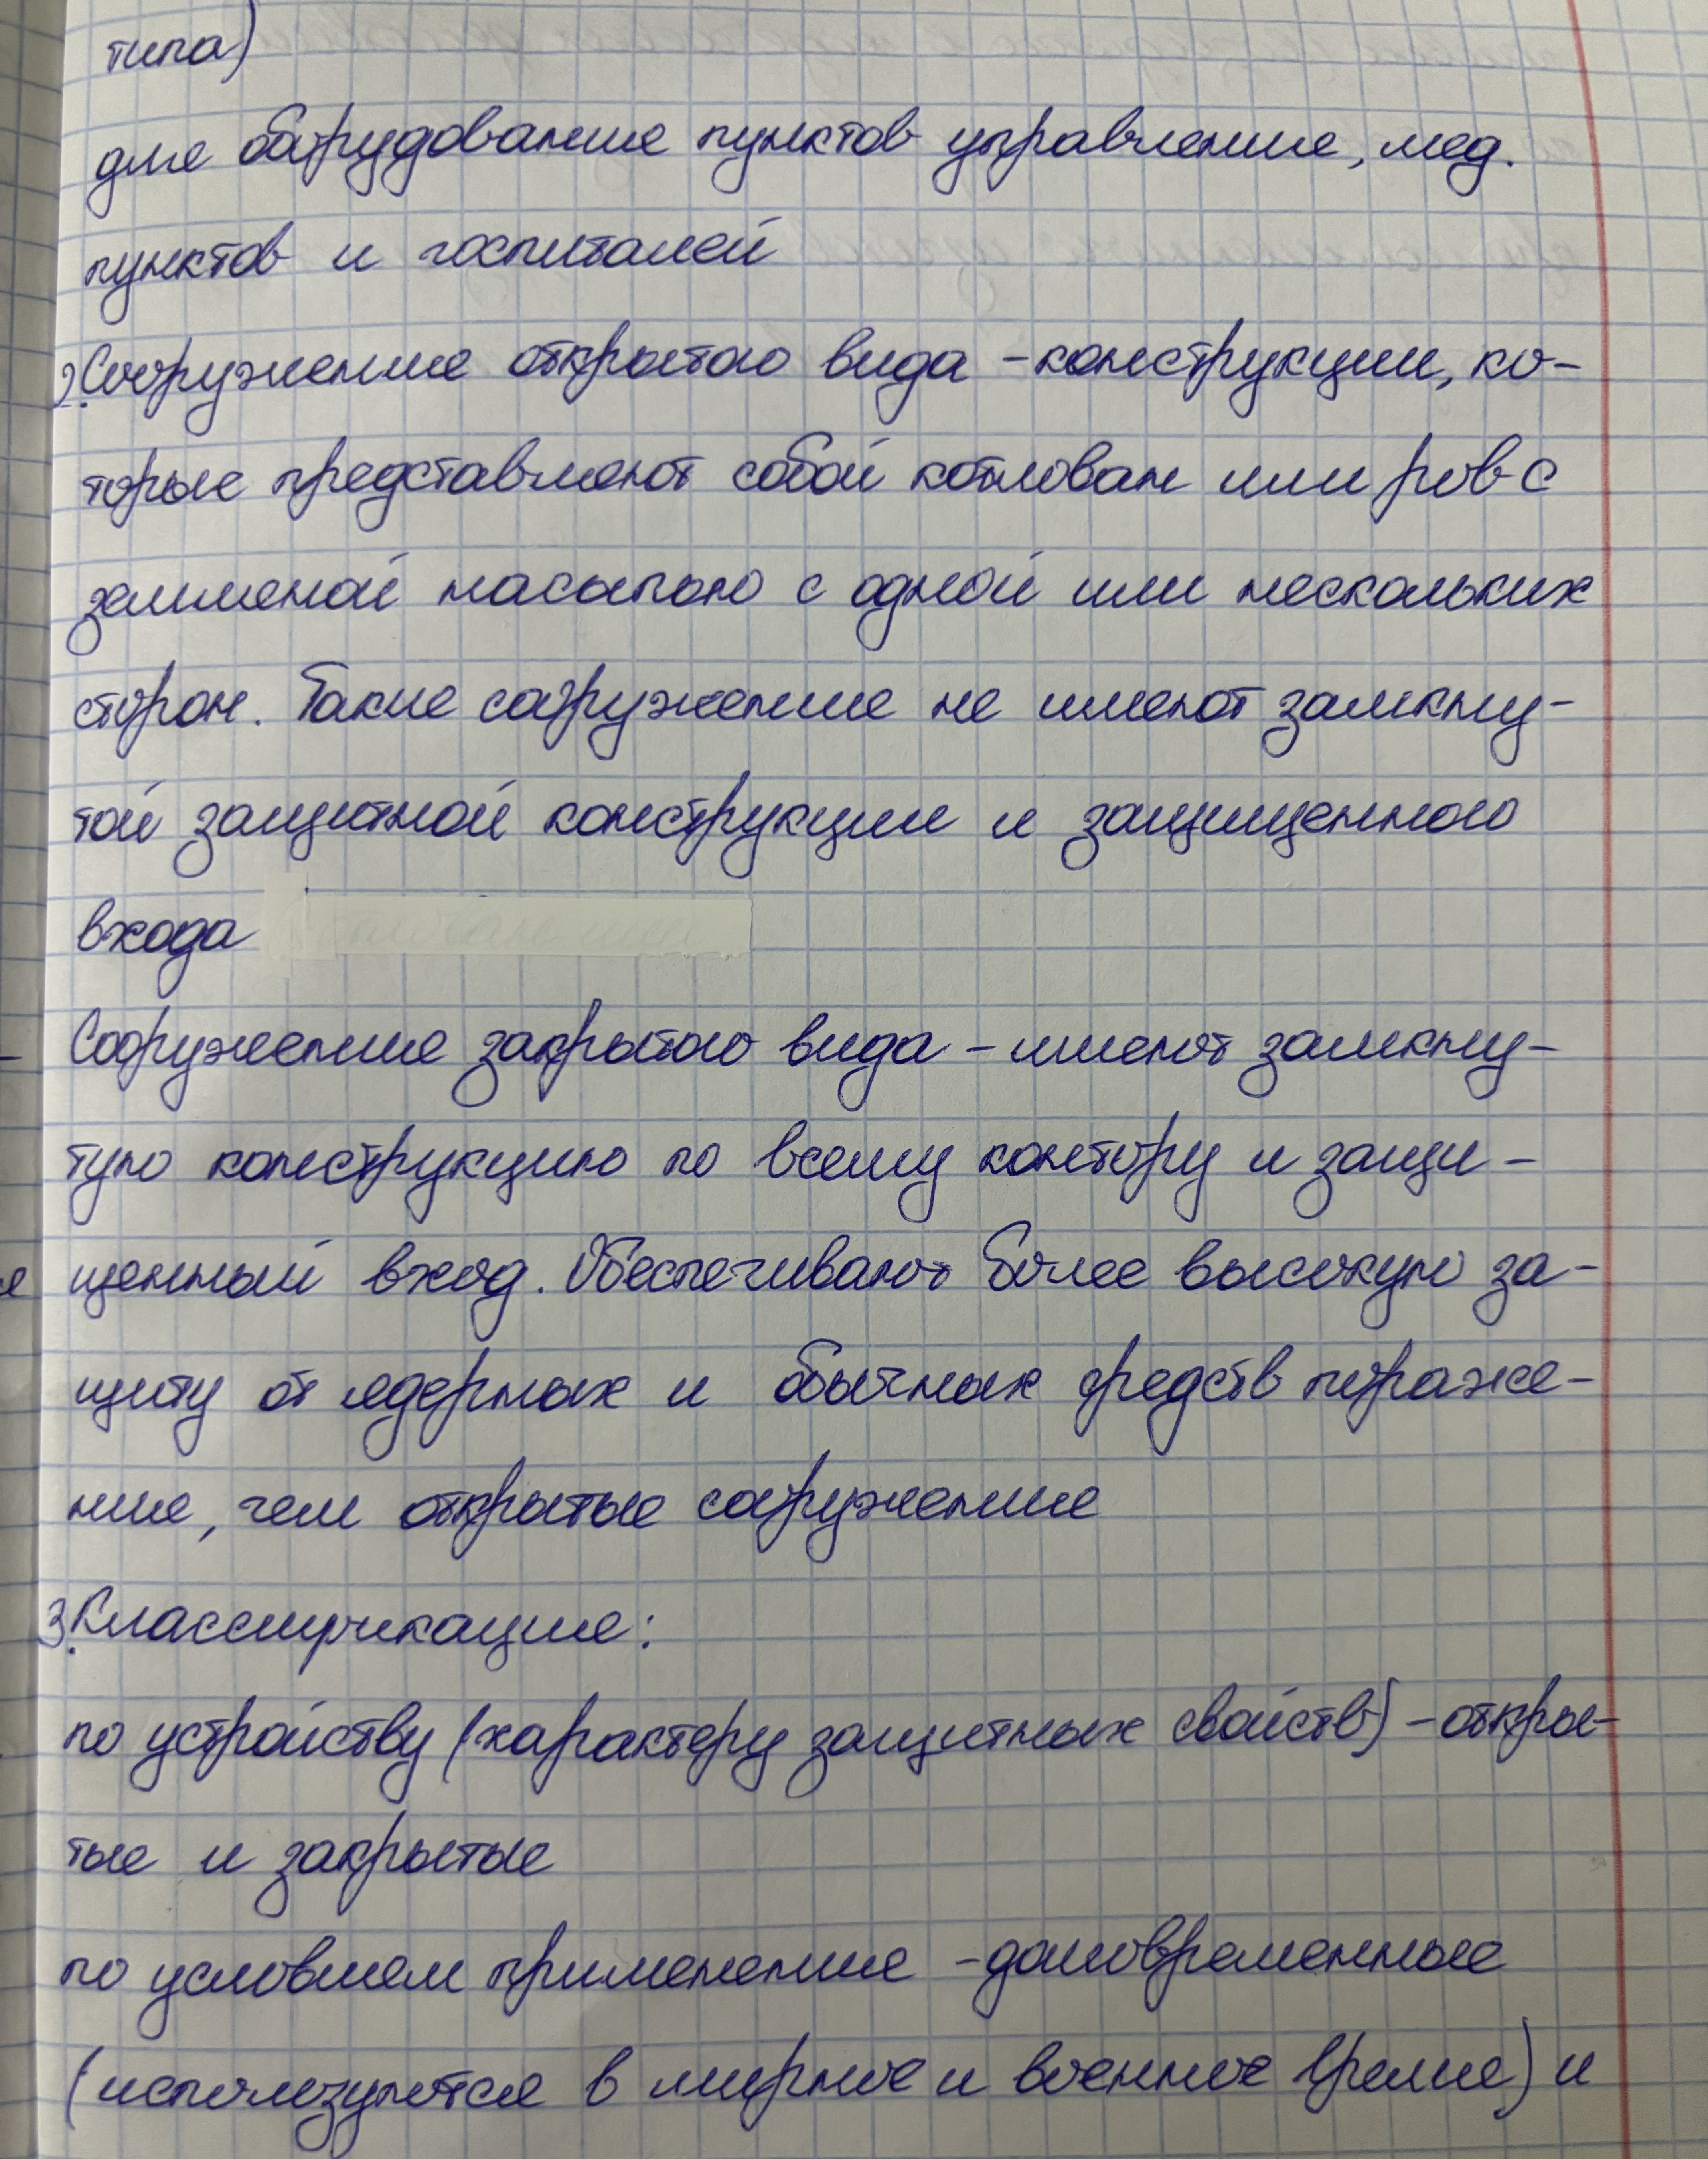 типа)
для оборудования пунктов управления, мед.
пунктов и госпиталей
2. Сооружения открытого вида - конструкции, ко-
торые представляют собой котлован или ров с
земляной насыпью с одной или нескольких
сторон. Такие сооружения не имеют замкну-
той защитной конструкции и защищенного
входа
Сооружения закрытого вида - имеют замкну-
тую конструкцию по всему контору и защи-
щенный вход. Обеспечивают более высокую за-
щиту от ядерных и обычных средств пораже-
ния, чем открытые сооружения
3. Классификация:
по устройству (характеру защитных свойств) - откры-
тые и закрытые
по условиям применения - долговременные
(используются в мирное и военное время) и